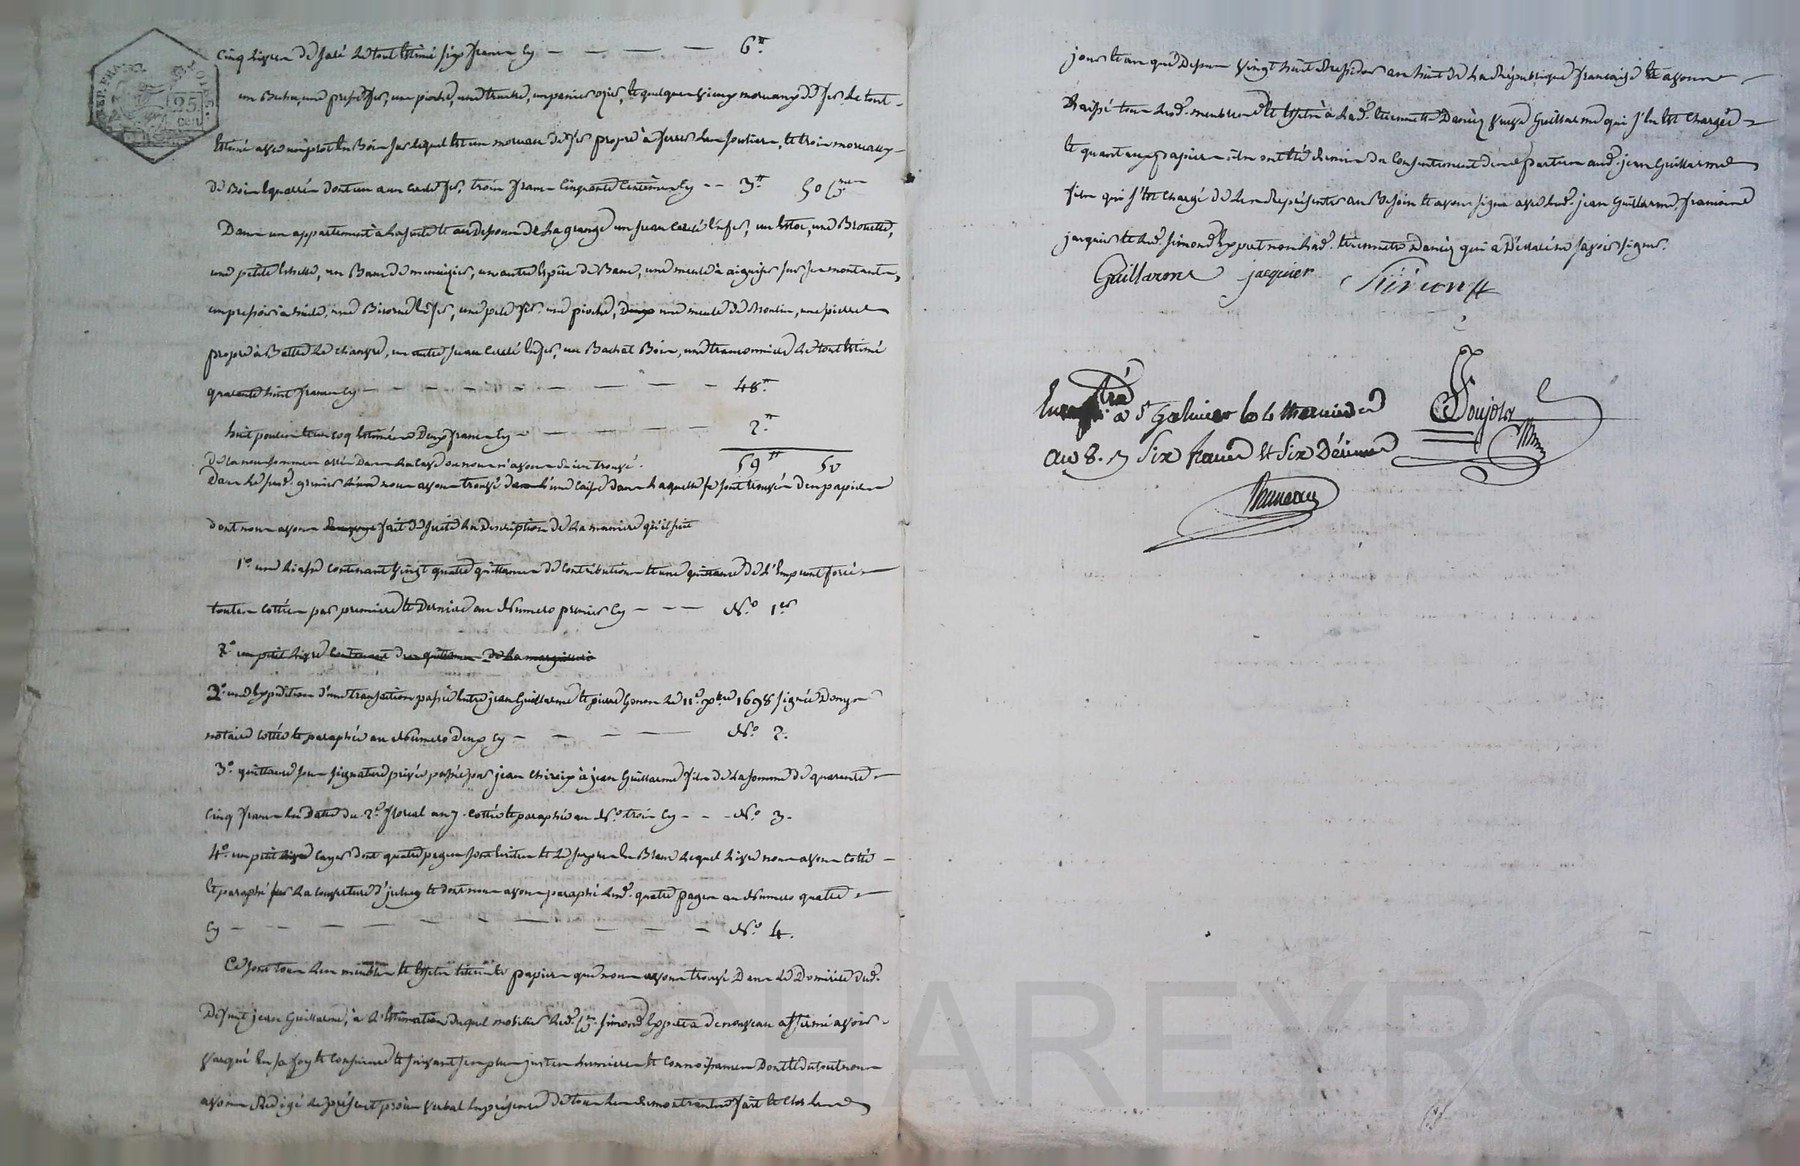 REP. FRA.
25
Cen.
cinq livres de salé le tout estimé six francs cy — — — — 6tt
un Bichu, une presse fer, une pioche, une truelle, un panier ozié, et quelques vieux morceaux de fer le tout
estimé avec un prot en Bois sur lequel est un morceau de fer propre à ferrer les soulier, et trois morceaux
de Bois équarris dont un a un cercle fer, trois francs cinquante centimes cy -- 3tt 50 c.mes
Dans un appartement à la suite et au Dessous de la grange un seau cerclé en fer, un étoc, une Brouette,
une petite échelle, un Banc de menuizier, un autre espèce de Banc, une meule à aiguiser sur ses montants,
un pressoir à huile, une Bicorne en fer, une pele fer, une pioche, une meule de Moulin, une pierre
propre à Battre le chanvre, un autre seau cerclé en fer, un Bachat Bois, une le tout estimé
quarante huit francs cy — — — — — — — — 48tt
huit poules et un coq estimés Deux francs cy — — — — 2tt
De là nous sommes allés Dans la cave où nous n'avons rien trouvé. 59tt 50
Dans le susd. grenier à foin nous avons trouvé une caisse dans laquelle se sont trouvés Des papiers
dont nous avons fait de suite la Description de la manière qu'il suit
1° une liasse contenant vingt quatre quittances de contribution et une quittance de l'Emprunt forcé
toutes cottées par première et Dernière au Numero premier cy — — — N.° 1er
2° un petit livre contenant des quittances de la
2° une expédition d'une transaction passée entre jean Guillarme et pierre Gonon le 11e xbre 1698 signée Denyo
notaire cottée et paraphée au Numero Deux cy — — — — N.° 2.
3° quittance sous signature privée passée par jean chireix à jean Guillarme fils de la somme de quarante
cinq francs en Date du 2e floreal an 7. cottée et paraphée au N.° trois cy - - - N.° 3.
4° un petit cayer dont quatre pages sont écrites et le surplus en Blanc lequel livre nous avons cotté
et paraphé sur la couverture d'icelui et dont nous avons paraphé lesd. quatre pages au Numero quatre
cy — — — — — — — — — N.° 4.
Ce sont tous les meubles et effets et papiers que nous avons trouvé Dans le Domicile dud.
Défunt jean Guillarme, à l'estimation duquel mobilier led. c.en simond expert a de nouveau affirmé avoir
vacqué en sa foy et conscience et suivant ses plus justes lumieres et connoissances Dont et du tout nous
avons Redigé le présent procès verbal en présence de tous les fait et clos les
jour et an que Dessus vingt huit Messidor an huit de la République francaise et avons
Laissé tous lesd. meubles et effets à lad. étiennette Daniez veuve Guillarme qui s'en est chargée
et quant aux papiers ils ont été remis du consentement des parties aud. jean Guillarme
fils qui s'est chargé de les représenter au Besoin et avons signé avec led. jean Guillarme, francois
jacquier et led. simond expert non lad. étiennette Daniez qui a Déclaré ne savoir signer.
Guillarme jacquier Simond
Enregistré à St Galmier le 6 thermidor
an 8. R Six francs et Six Décimes